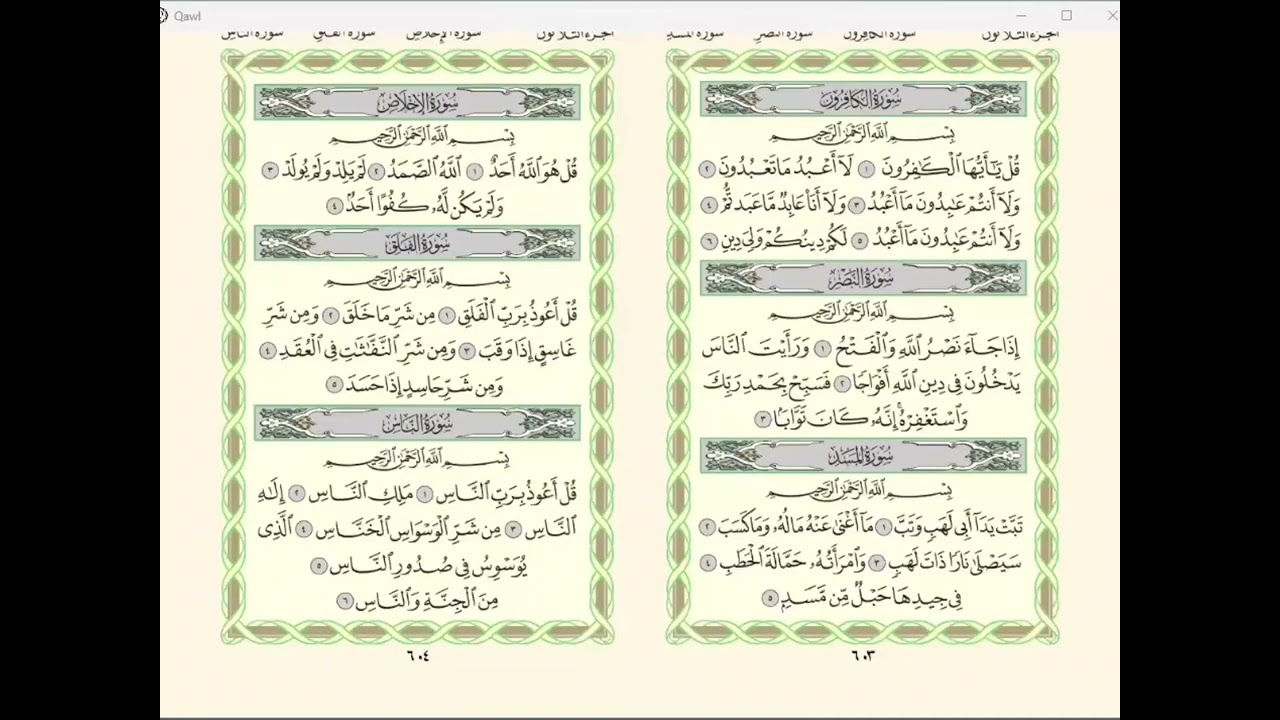 Qawl
الجزء الثلاثون سورة الكافرون سورة النصر سورة المسد
سُورَةُ الكَافِرُونَ
بِسْمِ اللَّهِ الرَّحْمَٰنِ الرَّحِيمِ
قُلْ يَٰٓأَيُّهَا الْكَٰفِرُونَ ١ لَآ أَعْبُدُ مَا تَعْبُدُونَ ٢
وَلَآ أَنتُمْ عَٰبِدُونَ مَآ أَعْبُدُ ٣ وَلَآ أَنَا۠ عَابِدٌ مَّا عَبَدتُّمْ ٤
وَلَآ أَنتُمْ عَٰبِدُونَ مَآ أَعْبُدُ ٥ لَكُمْ دِينُكُمْ وَلِيَ دِينِ ٦
سُورَةُ النَّصْرِ
بِسْمِ اللَّهِ الرَّحْمَٰنِ الرَّحِيمِ
إِذَا جَآءَ نَصْرُ اللَّهِ وَالْفَتْحُ ١ وَرَأَيْتَ النَّاسَ
يَدْخُلُونَ فِي دِينِ اللَّهِ أَفْوَاجًا ٢ فَسَبِّحْ بِحَمْدِ رَبِّكَ
وَاسْتَغْفِرْهُ ۚ إِنَّهُۥ كَانَ تَوَّابًۢا ٣
سُورَةُ المَسَدِ
بِسْمِ اللَّهِ الرَّحْمَٰنِ الرَّحِيمِ
تَبَّتْ يَدَآ أَبِي لَهَبٍ وَتَبَّ ١ مَآ أَغْنَىٰ عَنْهُ مَالُهُۥ وَمَا كَسَبَ ٢
سَيَصْلَىٰ نَارًا ذَاتَ لَهَبٍ ٣ وَامْرَأَتُهُۥ حَمَّالَةَ الْحَطَبِ ٤
فِي جِيدِهَا حَبْلٌ مِّن مَّسَدٍۭ ٥
٦٠٣
الجزء الثلاثون سورة الإخلاص سورة الفلق سورة الناس
سُورَةُ الإِخْلَاصِ
بِسْمِ اللَّهِ الرَّحْمَٰنِ الرَّحِيمِ
قُلْ هُوَ اللَّهُ أَحَدٌ ١ اللَّهُ الصَّمَدُ ٢ لَمْ يَلِدْ وَلَمْ يُولَدْ ٣
وَلَمْ يَكُن لَّهُۥ كُفُوًا أَحَدٌۢ ٤
سُورَةُ الفَلَقِ
بِسْمِ اللَّهِ الرَّحْمَٰنِ الرَّحِيمِ
قُلْ أَعُوذُ بِرَبِّ الْفَلَقِ ١ مِن شَرِّ مَا خَلَقَ ٢ وَمِن شَرِّ
غَاسِقٍ إِذَا وَقَبَ ٣ وَمِن شَرِّ النَّفَّٰثَٰتِ فِي الْعُقَدِ ٤
وَمِن شَرِّ حَاسِدٍ إِذَا حَسَدَ ٥
سُورَةُ النَّاسِ
بِسْمِ اللَّهِ الرَّحْمَٰنِ الرَّحِيمِ
قُلْ أَعُوذُ بِرَبِّ النَّاسِ ١ مَلِكِ النَّاسِ ٢ إِلَٰهِ
النَّاسِ ٣ مِن شَرِّ الْوَسْوَاسِ الْخَنَّاسِ ٤ الَّذِي
يُوَسْوِسُ فِي صُدُورِ النَّاسِ ٥
مِنَ الْجِنَّةِ وَالنَّاسِ ٦
٦٠٤